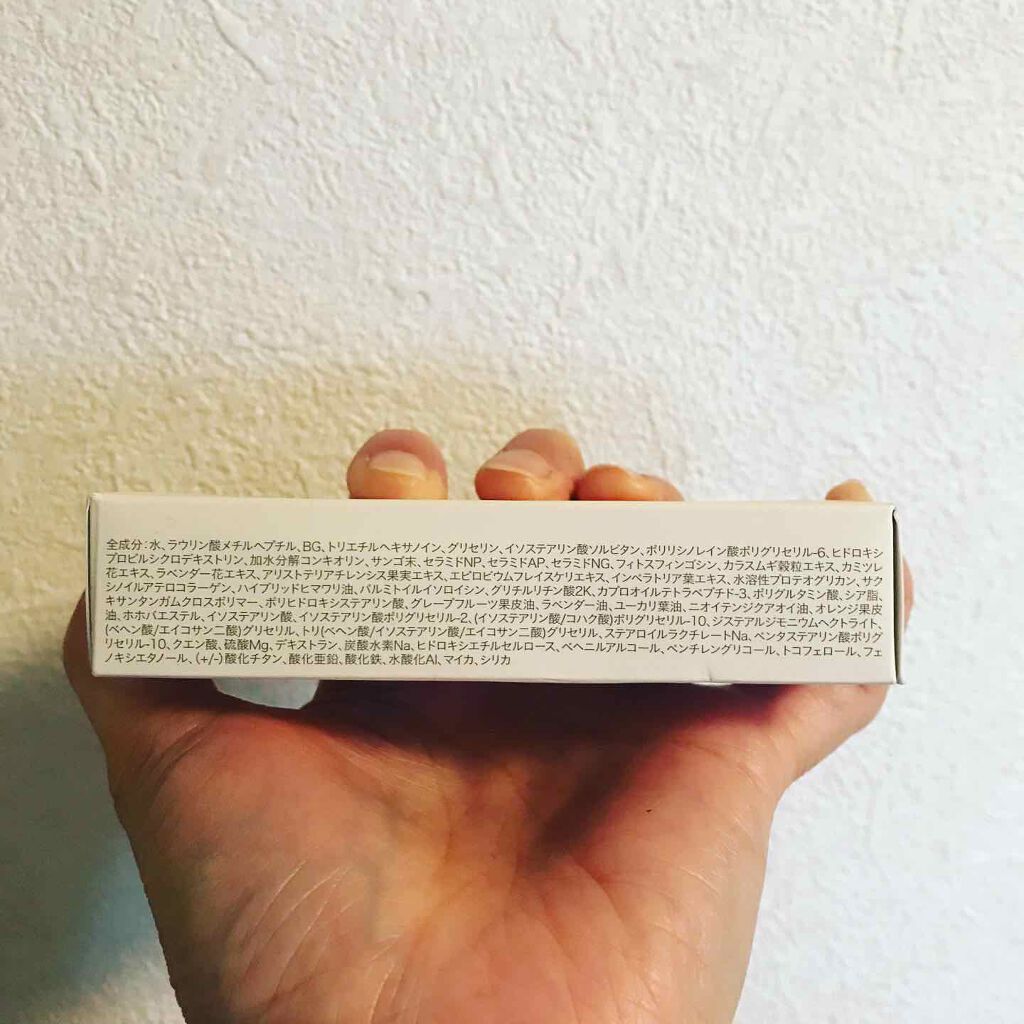 全成分:水、ラウリン酸メチルヘプチル、BG、トリエチルヘキサノイン、グリセリン、イソステアリン酸ソルビタン、ポリリシノレイン酸ポリグリセリル-6、ヒドロキシ
プロピルシクロデキストリン、加水分解コンキオリン、サンゴ末、セラミドNP、セラミドAP、セラミドNG、フィトスフィンゴシン、カラスムギ穀粒エキス、カミツレ
花エキス、ラベンダー花エキス、アリストテリアチレンシス果実エキス、エピロビウムフレイスケリエキス、インペラトリア葉エキス、水溶性プロテオグリカン、サク
シノイルアテロコラーゲン、ハイブリッドヒマワリ油、パルミトイルイソロイシン、グリチルリチン酸2K、カプロオイルテトラペプチド-3、ポリグルタミン酸、シア脂、
キサンタンガムクロスポリマー、ポリヒドロキシステアリン酸、グレープフルーツ果皮油、ラベンダー油、ユーカリ葉油、ニオイテンジクアオイ油、オレンジ果皮
油、ホホバエステル、イソステアリン酸、イソステアリン酸ポリグリセリル-2、(イソステアリン酸/コハク酸)ポリグリセリル-10、ジステアルジモニウムヘクトライト、
(ベヘン酸/エイコサン二酸)グリセリル、トリ(ベヘン酸/イソステアリン酸/エイコサン二酸)グリセリル、ステアロイルラクチレートNa、ペンタステアリン酸ポリグ
リセリル-10、クエン酸、硫酸Mg、デキストラン、炭酸水素Na、ヒドロキシエチルセルロース、ベヘニルアルコール、ペンチレングリコール、トコフェロール、フェ
ノキシエタノール、(+/-)酸化チタン、酸化亜鉛、酸化鉄、水酸化Al、マイカ、シリカ